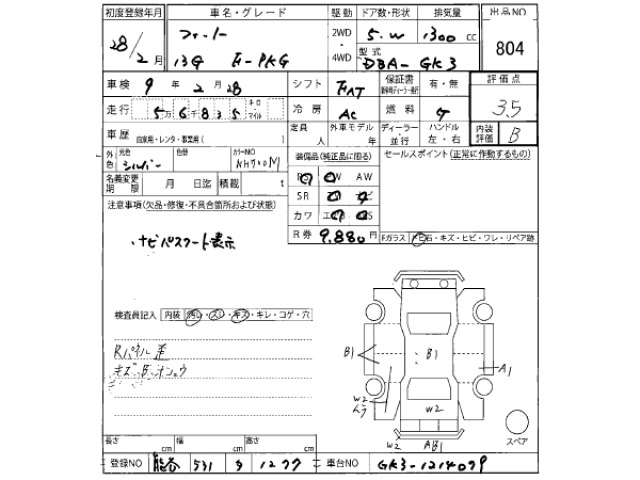 初度登録年月 車名・グレード 駆動 ドア数・形状 排気量 出品NO
28年2月 フィット 2WD・4WD 5.W 1300cc 804
13G F-PKG 型式 DBA-GK3
車検 9年2月28 シフト FAT 保証書 有・無 評価点
走行 5万6835 キロ・マイル 冷房 AC 燃料 ガ 3.5
車歴 自家用・レンタ・事業用( ) 定員 人 外車モデル 年 ディーラー・並行 ハンドル 左・右 内装評価 B
外色 元色 シルバー 色替 カラーNO NH700M 装備品(純正品に限る) セールスポイント(正常に作動するもの)
名義変更期限 月 日迄 積載 t PS PW AW
注意事項(欠品・修復・不具合箇所および状態) SR ナビ
カワ エアB ABS
R券 9,880円 Fガラス トビ石・キズ・ヒビ・ワレ・リペア跡
・ナビパスワード表示
検査員記入 内装 汚レ・スレ・キズ・キレ・コゲ・穴
Rパネル歪
キズ
B1 B1 A1
W2
W2
W2 AB1
スペア
長さ cm 幅 cm 高さ cm
登録NO 熊谷 531 タ 1277 車台NO GK3-1214079